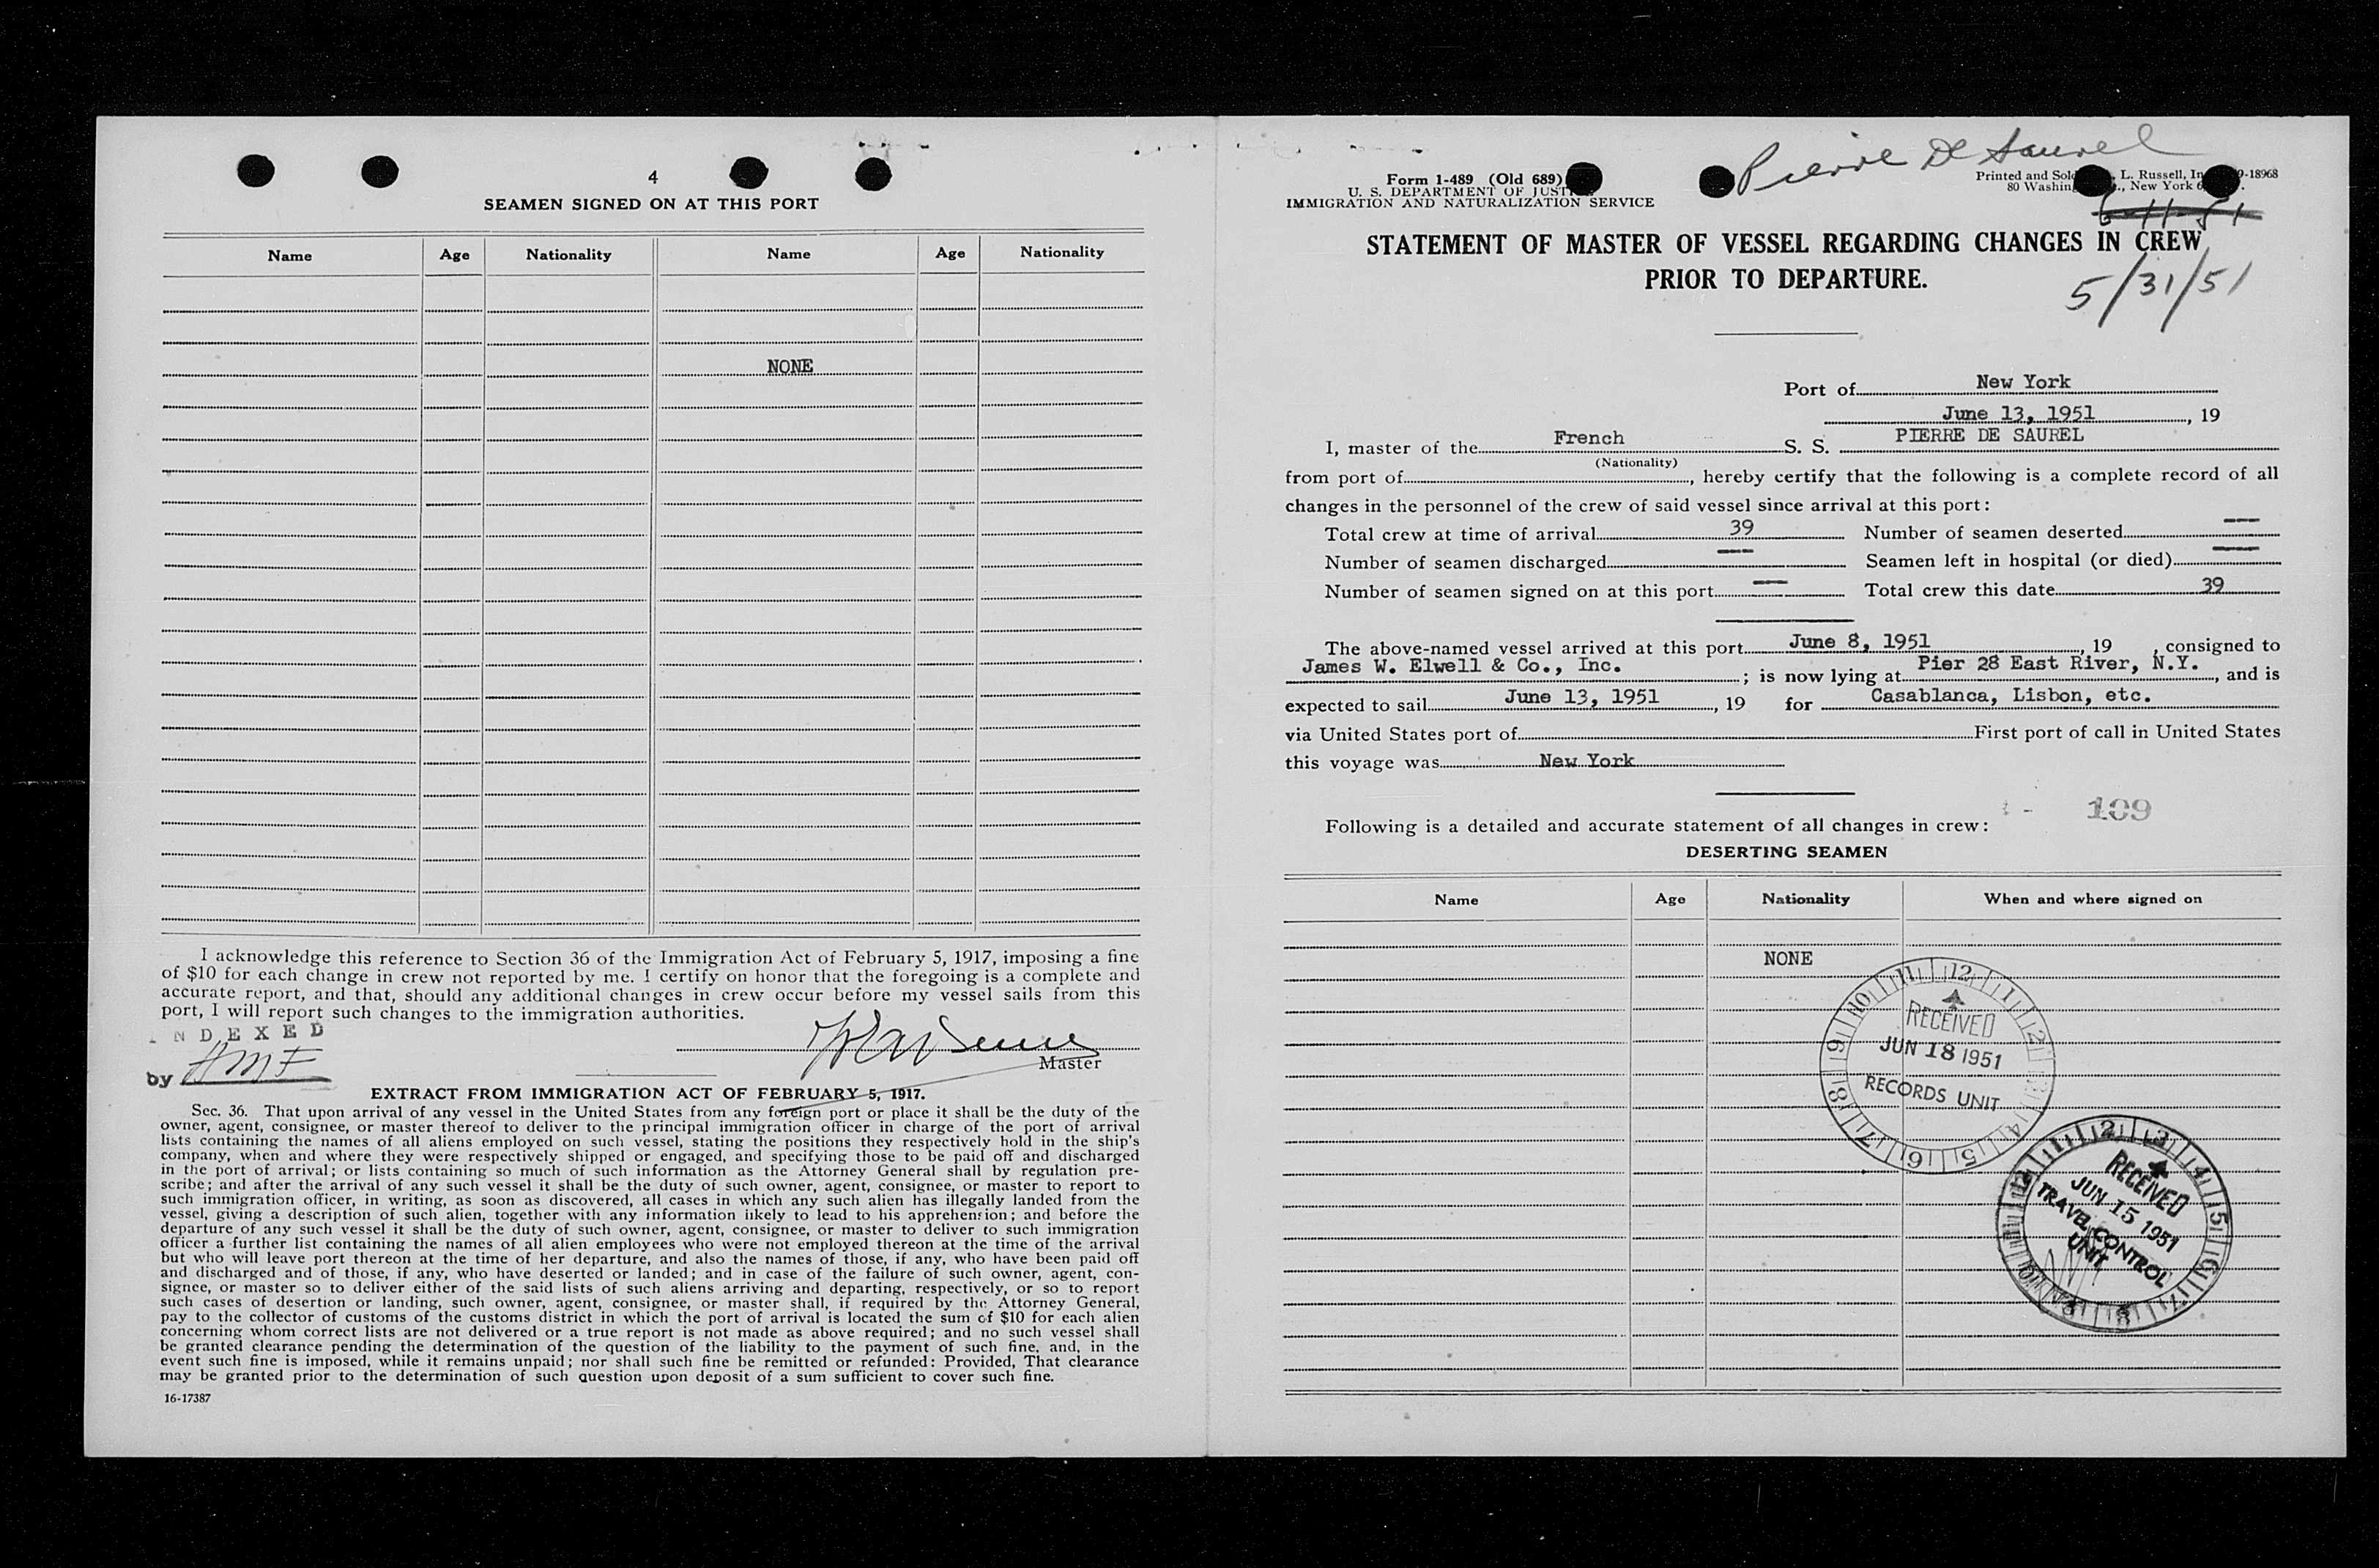 4
SEAMEN SIGNED ON AT THIS PORT
Name Age Nationality Name Age Nationality
NONE
I acknowledge this reference to Section 36 of the Immigration Act of February 5, 1917, imposing a fine
of $10 for each change in crew not reported by me. I certify on honor that the foregoing is a complete and
accurate report, and that, should any additional changes in crew occur before my vessel sails from this
port, I will report such changes to the immigration authorities.
NDEXED
by HMF
Master
EXTRACT FROM IMMIGRATION ACT OF FEBRUARY 5, 1917.
Sec. 36. That upon arrival of any vessel in the United States from any foreign port or place it shall be the duty of the
owner, agent, consignee, or master thereof to deliver to the principal immigration officer in charge of the port of arrival
lists containing the names of all aliens employed on such vessel, stating the positions they respectively hold in the ship's
company, when and where they were respectively shipped or engaged, and specifying those to be paid off and discharged
in the port of arrival; or lists containing so much of such information as the Attorney General shall by regulation pre-
scribe; and after the arrival of any such vessel it shall be the duty of such owner, agent, consignee, or master to report to
such immigration officer, in writing, as soon as discovered, all cases in which any such alien has illegally landed from the
vessel, giving a description of such alien, together with any information likely to lead to his apprehension; and before the
departure of any such vessel it shall be the duty of such owner, agent, consignee, or master to deliver to such immigration
officer a further list containing the names of all alien employees who were not employed thereon at the time of the arrival
but who will leave port thereon at the time of her departure, and also the names of those, if any, who have been paid off
and discharged and of those, if any, who have deserted or landed; and in case of the failure of such owner, agent, con-
signee, or master so to deliver either of the said lists of such aliens arriving and departing, respectively, or so to report
such cases of desertion or landing, such owner, agent, consignee, or master shall, if required by the Attorney General,
pay to the collector of customs of the customs district in which the port of arrival is located the sum of $10 for each alien
concerning whom correct lists are not delivered or a true report is not made as above required; and no such vessel shall
be granted clearance pending the determination of the question of the liability to the payment of such fine, and, in the
event such fine is imposed, while it remains unpaid; nor shall such fine be remitted or refunded: Provided, That clearance
may be granted prior to the determination of such question upon deposit of a sum sufficient to cover such fine.
16-17387
Pierre De Saurel
Form 1-489 (Old 689)
U. S. DEPARTMENT OF JUSTICE
IMMIGRATION AND NATURALIZATION SERVICE
Printed and Sold L. Russell, In 9-18968
80 Washin ., New York 6
6-11-51
STATEMENT OF MASTER OF VESSEL REGARDING CHANGES IN CREW
PRIOR TO DEPARTURE.
5/31/51
Port of New York
June 13, 1951, 19
I, master of the French S. S. PIERRE DE SAUREL
(Nationality)
from port of, hereby certify that the following is a complete record of all
changes in the personnel of the crew of said vessel since arrival at this port:
Total crew at time of arrival 39 Number of seamen deserted —
Number of seamen discharged — Seamen left in hospital (or died) —
Number of seamen signed on at this port — Total crew this date 39
The above-named vessel arrived at this port June 8, 1951, 19 , consigned to
James W. Elwell & Co., Inc. ; is now lying at Pier 28 East River, N.Y., and is
expected to sail June 13, 1951, 19 for Casablanca, Lisbon, etc.
via United States port of First port of call in United States
this voyage was New York
109
Following is a detailed and accurate statement of all changes in crew:
DESERTING SEAMEN
Name Age Nationality When and where signed on
NONE
12 1 2 3 4 5 6 7 8 9 10 11
RECEIVED
JUN 18 1951
RECORDS UNIT
12 1 2 3 4 5 6 7 8 9 10 11
RECEIVED
JUN 15 1951
TRAVEL CONTROL
UNIT